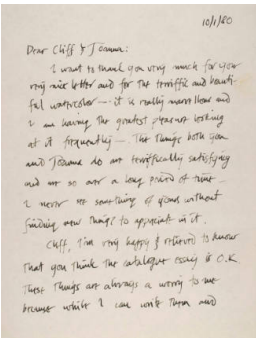 10/1/80
Dear Cliff & Joanna:
I want to thank you very much for your
very nice letter and for the terrific and beauti-
ful watercolor — it is really marvellous and
I am having the greatest pleasure looking
at it frequently —. The things both you
and Joanna do are terrifically satisfying
and are so over a long period of time.
I never see something of yours without
finding new things to appreciate in it.
Cliff, I'm very happy & relieved to know
that you think the catalogue essay is O.K.
These things are always a worry to me
because while I can write them and